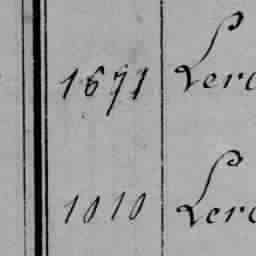 1671 Lero
1010 Lero